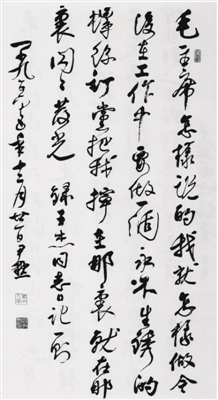 毛主席怎樣說的我就怎樣做今
後在工作中要做一個永不生銹的
螺絲釘黨把我擰在那裏就在那
裏閃々發光 録王杰同志日記一則
一九六五年十二月廿一日尹默